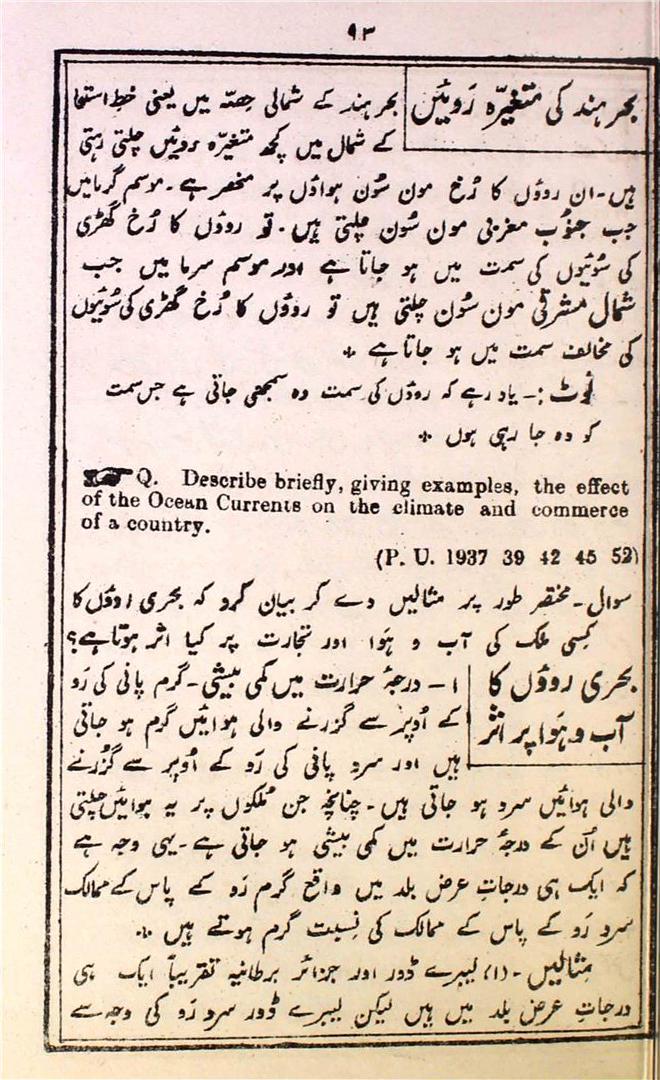 ۹۳
بحر ہند کی متغیّرہ رَوئیں
بحر ہند کے شمالی حِصّہ میں یعنی خطِ استوا
کے شمال میں کچھ متغیّرہ روئیں چلتی رہتی
ہیں۔ ان روؤں کا رُخ مون سُون ہواؤں پر منحصر ہے۔ موسم گرما میں
جب جنُوب مغربی مون سُون چلتی ہیں۔ تو روؤں کا رُخ گھڑی
کی سُوئیوں کی سمت میں ہو جاتا ہے اور موسم سرما میں جب
شمال مشرقی مون سُون چلتی ہیں تو روؤں کا رُخ گھڑی کی سُوئیوں
کی مخالف سمت میں ہو جاتا ہے ٭
نوٹ :۔ یاد رہے کہ روؤں کی سمت وہ سمجھی جاتی ہے جس سمت
کو وہ جا رہی ہوں ٭
☛ Q. Describe briefly, giving examples, the effect
of the Ocean Currents on the climate and commerce
of a country.
(P. U. 1937 39 42 45 52)
سوال۔ مختصر طور پر مثالیں دے کر بیان کرو کہ بحری روؤں کا
کِسی ملک کی آب و ہَوا اور تجارت پر کیا اثر ہوتا ہے؟
بحری روؤں کا
آب و ہَوا پر اثر
۱۔ درجۂ حرارت میں کمی بیشی۔ گرم پانی کی رَو
کے اُوپر سے گزرنے والی ہوائیں گرم ہو جاتی
ہیں اور سرد پانی کی رَو کے اُوپر سے گُزرنے
والی ہوائیں سرد ہو جاتی ہیں۔ چنانچہ جن مُلکوں پر یہ ہوائیں چلتی
ہیں اُن کے درجۂ حرارت میں کمی بیشی ہو جاتی ہے۔ یہی وجہ ہے
کہ ایک ہی درجاتِ عرض بلد میں واقع گرم رَو کے پاس کے ممالک
سرد رَو کے پاس کے ممالک کی نِسبت گرم ہوتے ہیں ٭
مثالیں۔ (۱) لیبرے ڈور اور جزائر برطانیہ تقریباً ایک ہی
درجاتِ عرض بلد میں ہیں لیکن لیبرے ڈور سرد رَو کی وجہ سے